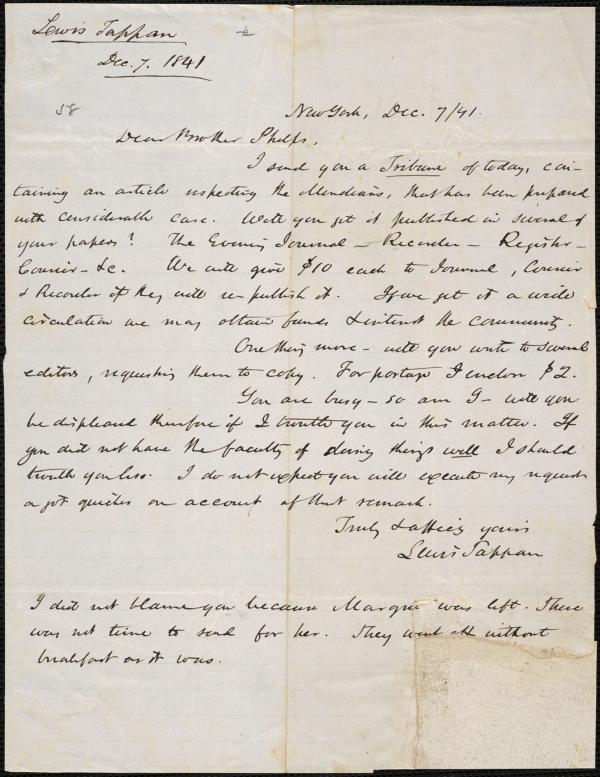 Lewis Tappan
Dec. 7. 1841
58
New York, Dec. 7/41.
Dear Brother Phelps,
I send you a Tribune of today, con-
taining an article respecting the Mendians, that has been prepared
with considerable care. Will you get it published in several of
your papers? The Evening Journal - Recorder - Register -
Courier - &c. We will give $10 each to Journal, Courier
& Recorder if they will re-publish it. If we get it a wide
circulation we may obtain funds & interest the community.
One thing more - will you write to several
editors, requesting them to copy. For postage I enclose $2.
You are busy - so am I - will you
be displeased therefore if I trouble you in this matter. If
you did not have the faculty of doing things well I should
trouble you less. I do not expect you will execute my request
a jot quicker on account of that remark.
Truly & affec'y yours
Lewis Tappan
I did not blame you because Margru was left. There
was not time to send for her. They went off without
breakfast as it was.